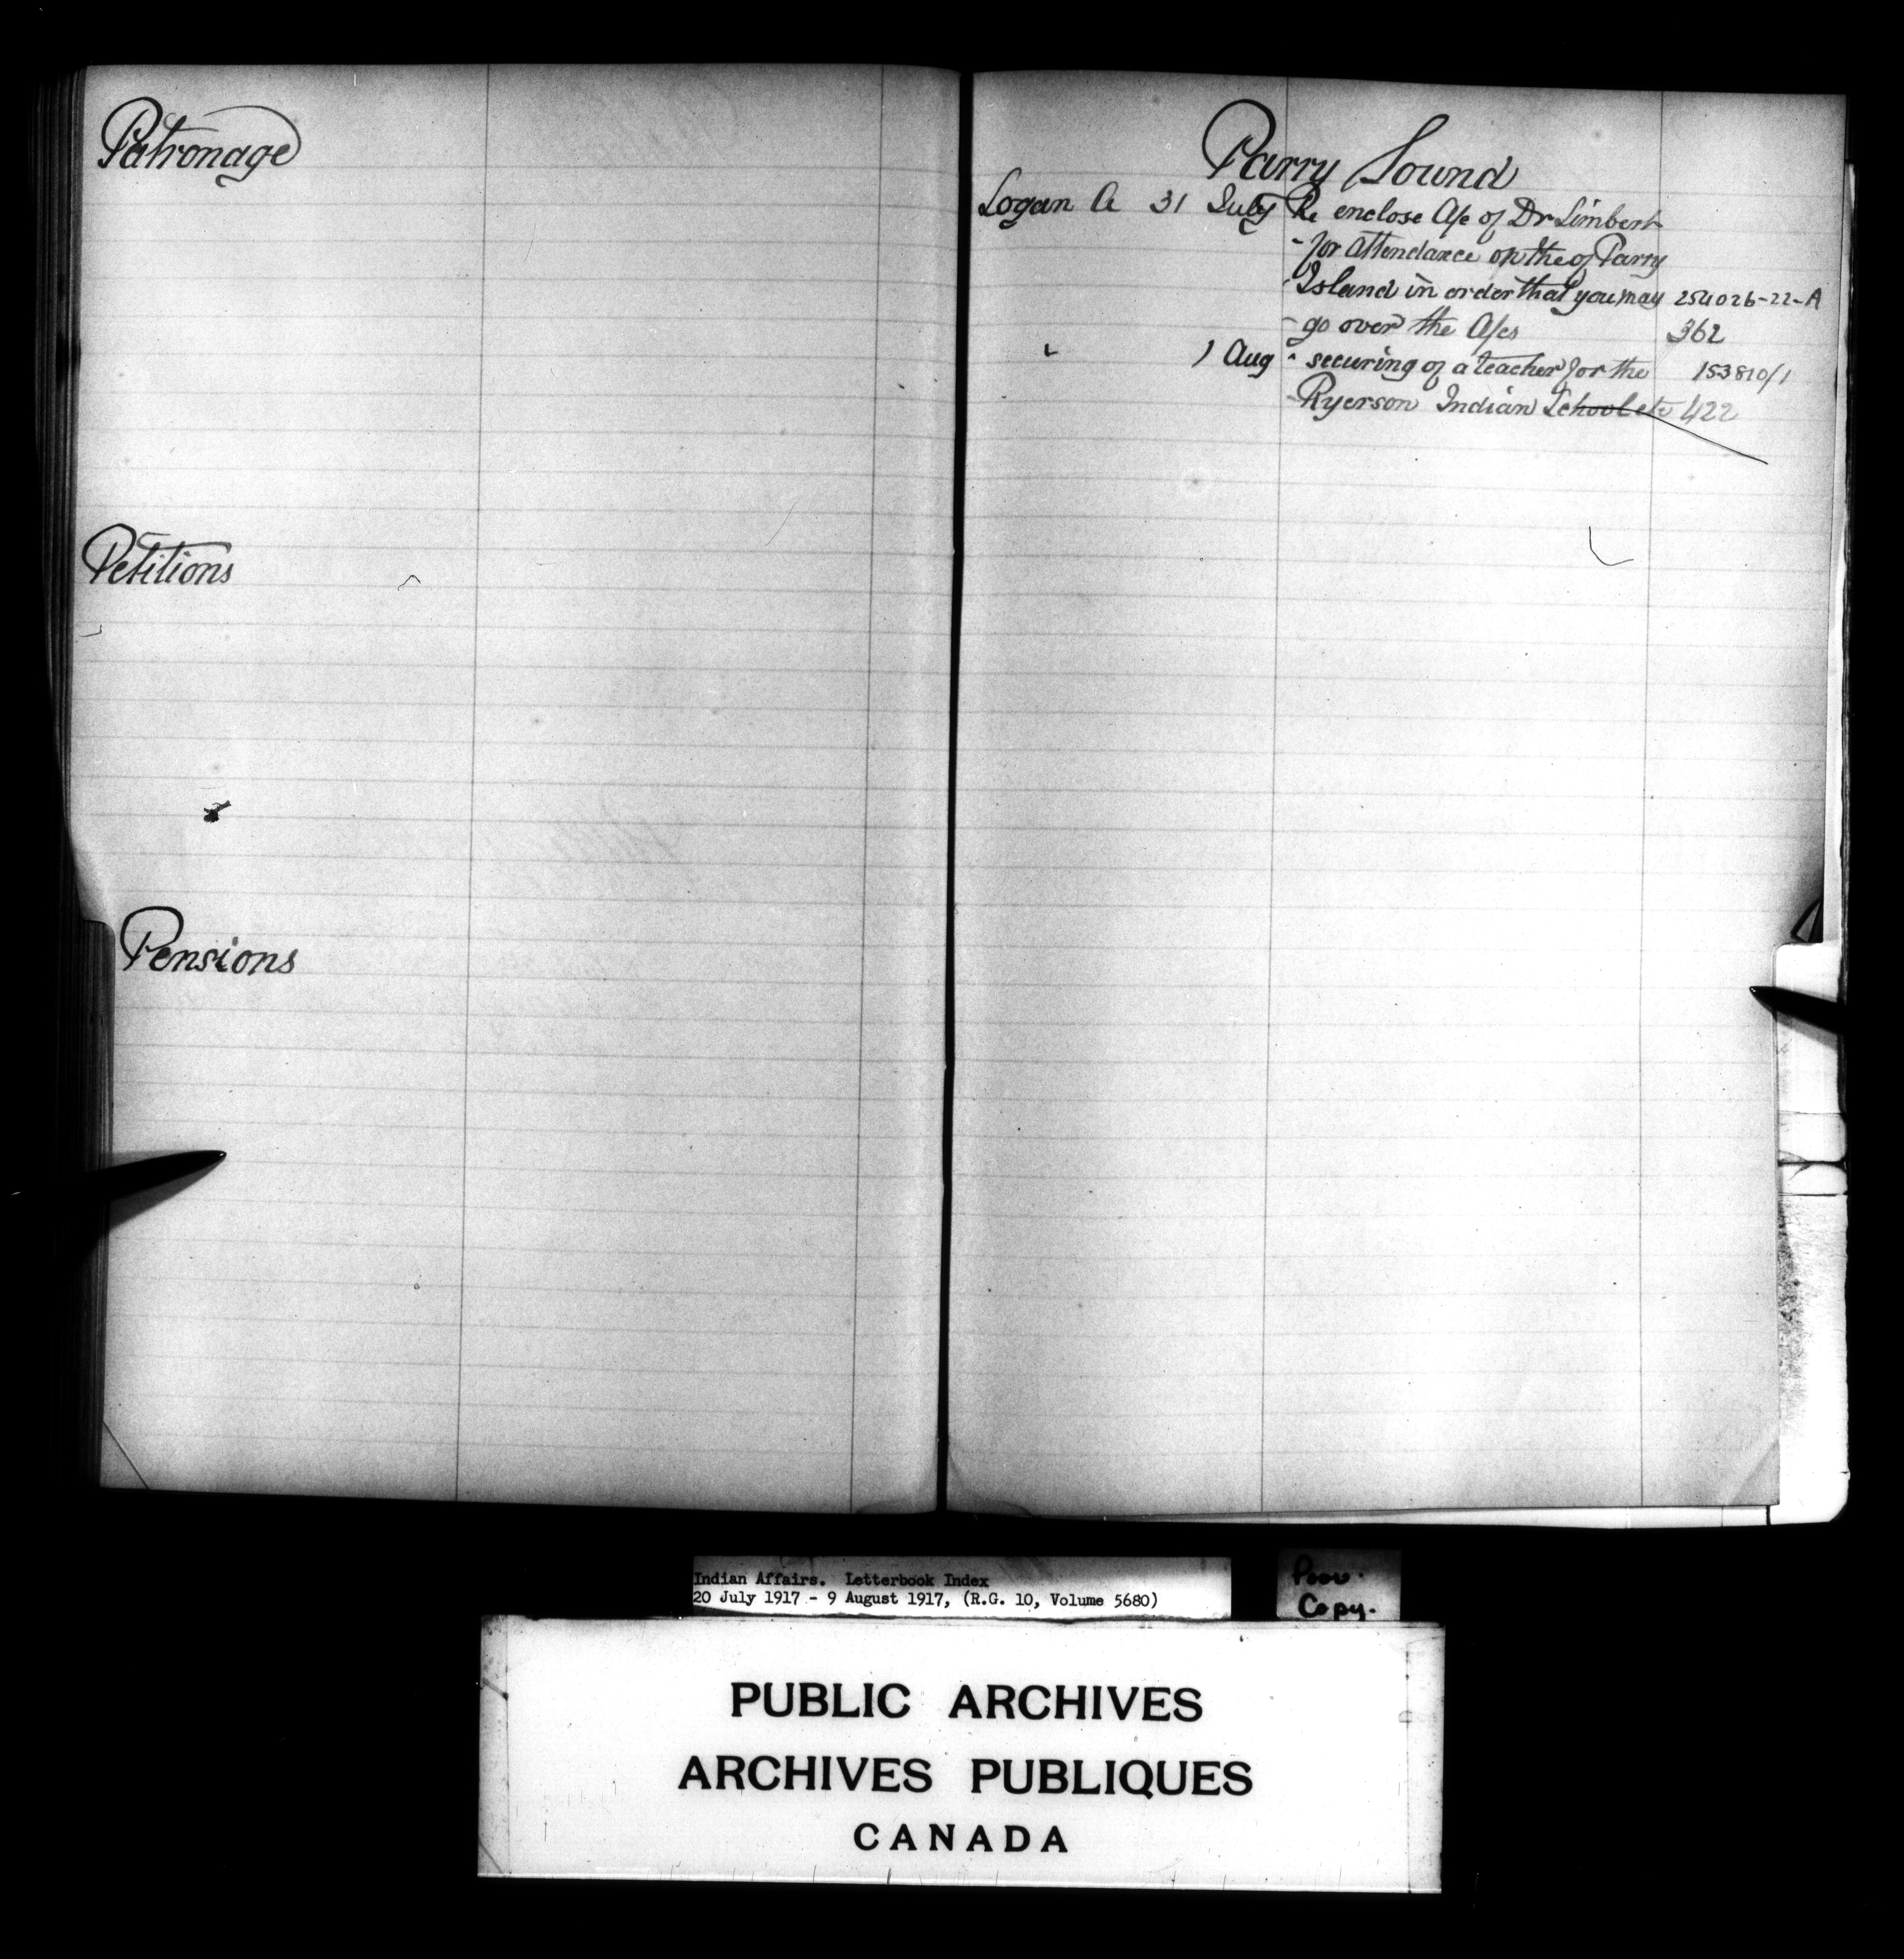 Patronage
Petitions
Pensions
Parry Sound
Logan A 31 July Re enclose A/c of Dr Limbert
- for attendance on the of Parry
- Island in order that you may 254026-22-A
- go over the A/cs 362
" 1 Aug " securing of a teacher for the 153810/1
- Ryerson Indian School etc 422
Indian Affairs. Letterbook Index
20 July 1917 - 9 August 1917, (R.G. 10, Volume 5680)
Poor.
Copy.
PUBLIC ARCHIVES
ARCHIVES PUBLIQUES
CANADA